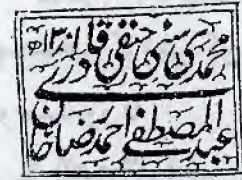 محمدی سنی حنفی قادری ۱۳۰۱ھ
عبد المصطفے احمد رضا خاں